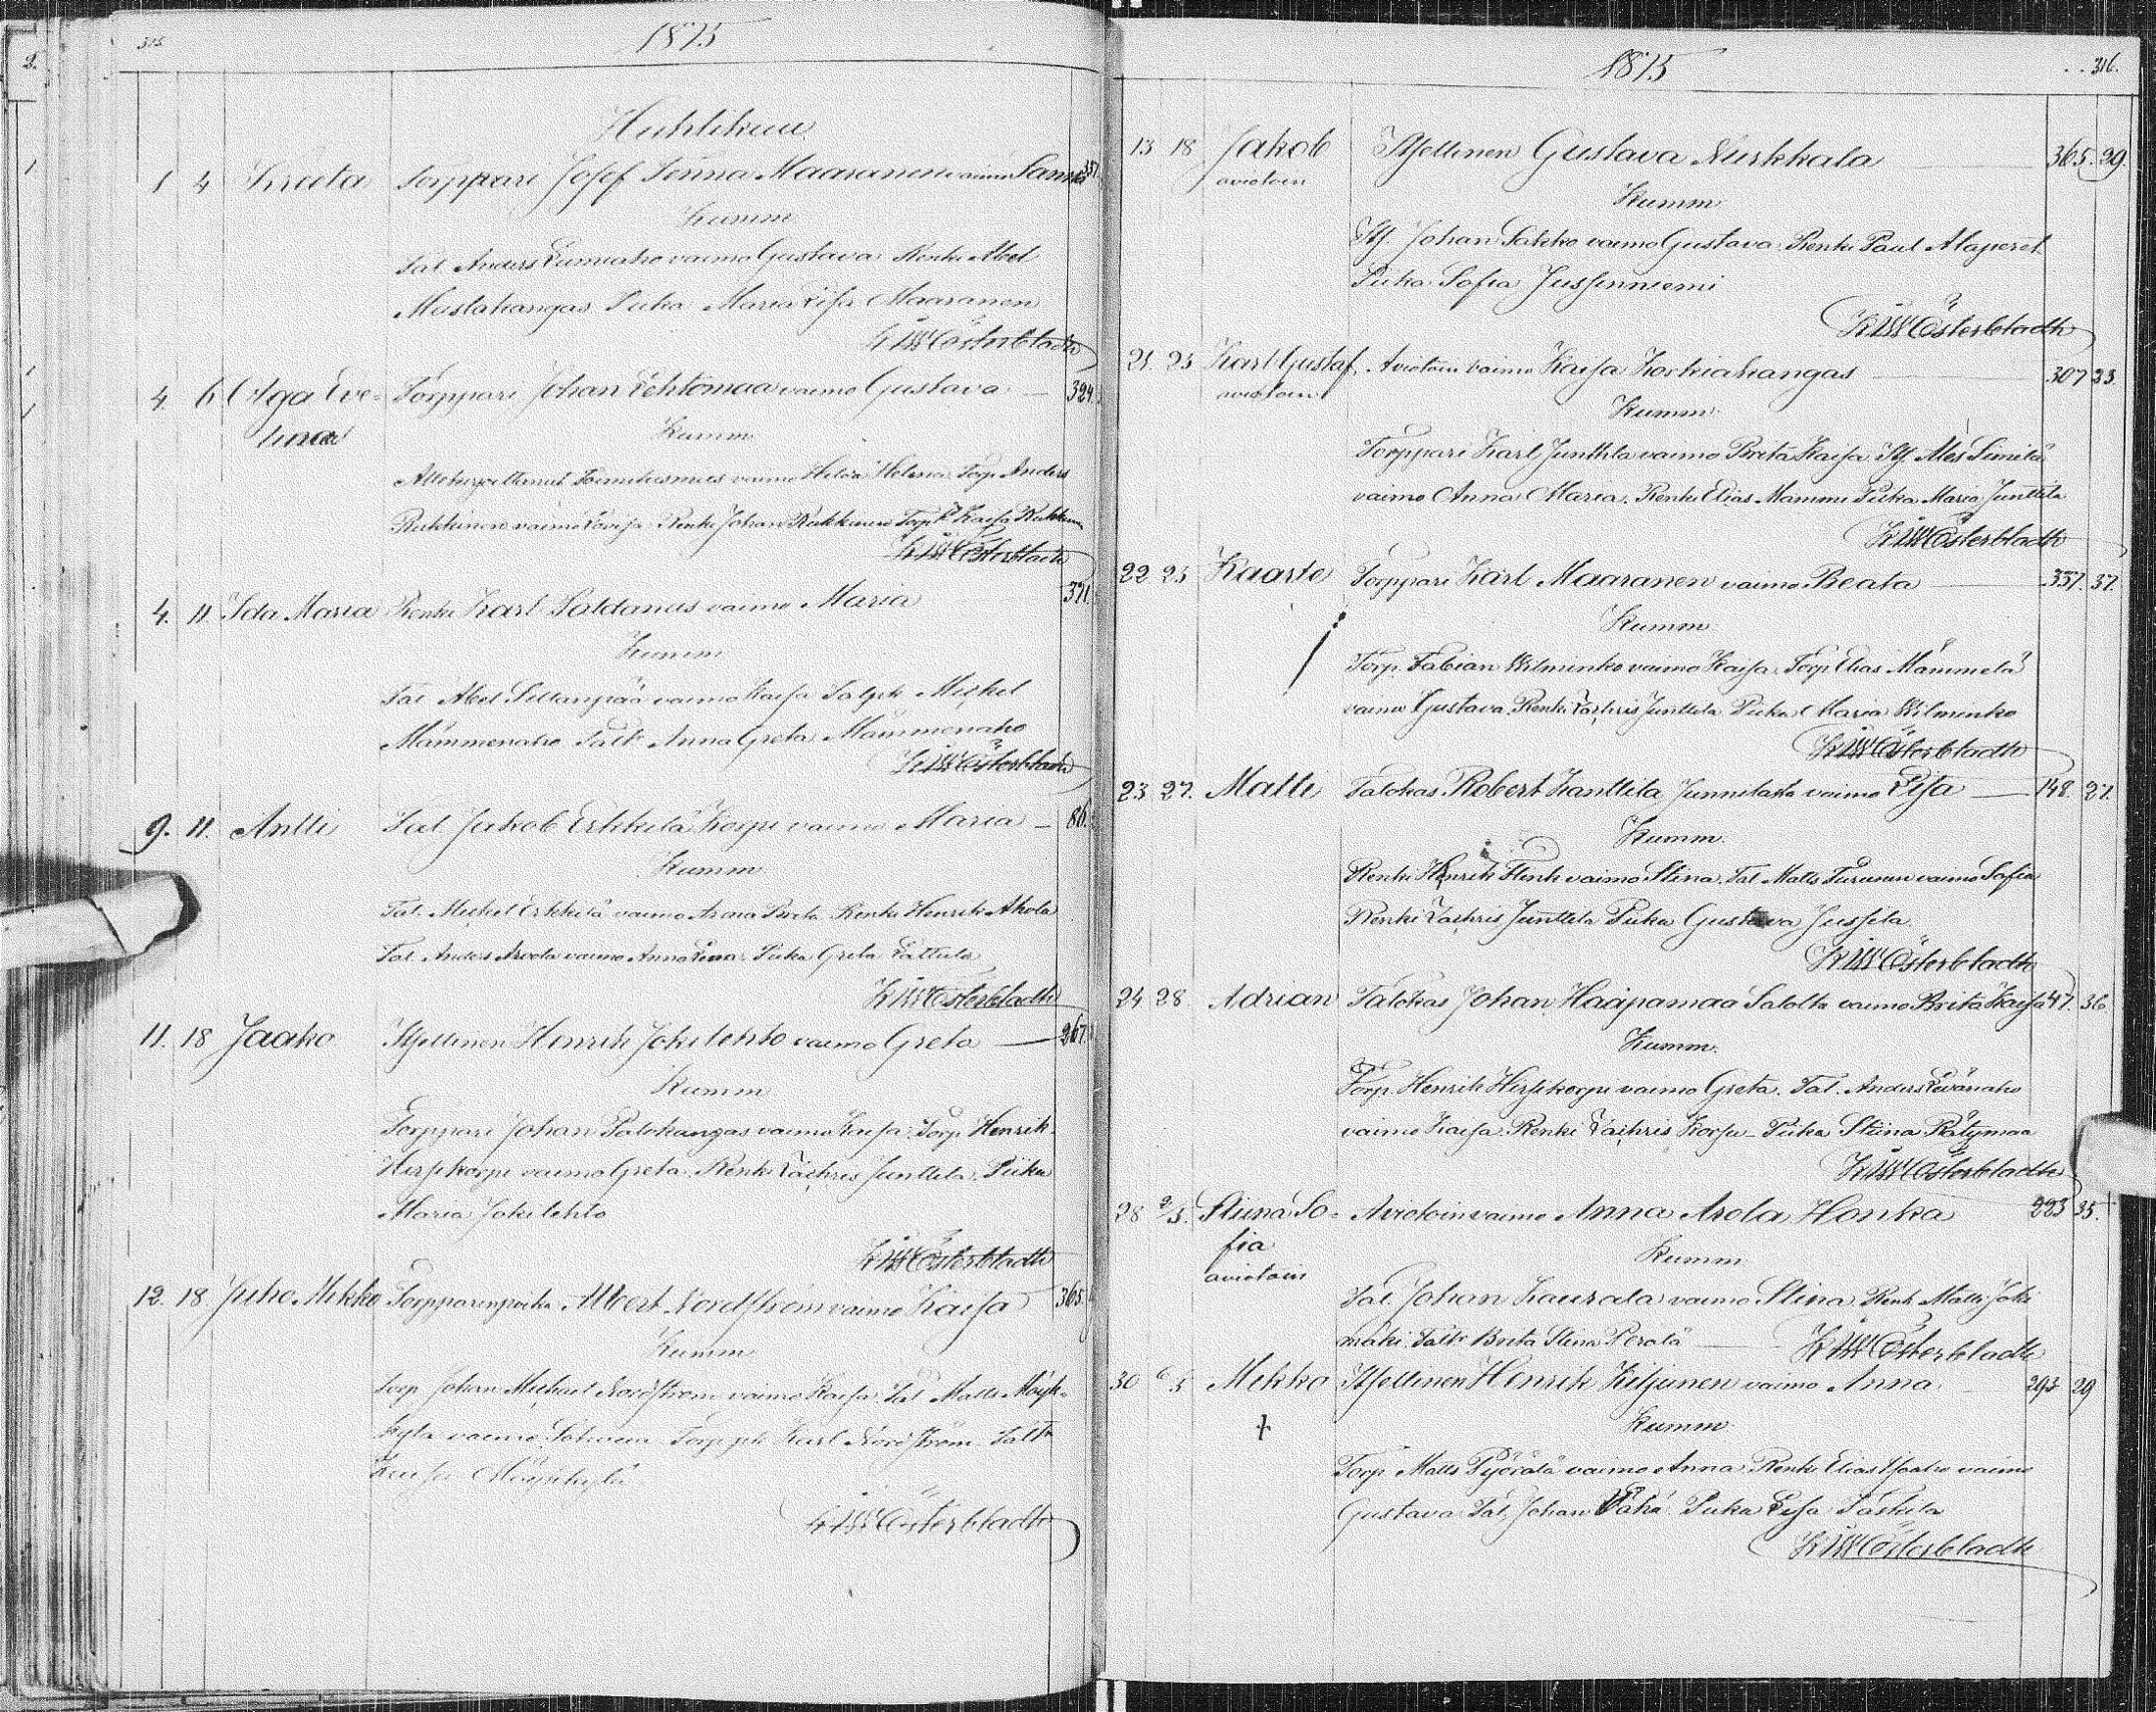 315.
1875
Huhtikuu
1 4 Kreeta Torppari Josef Jenna Maaranen vaimo Sanna 357.
Kumm
Tal. Anders Lumiaho vaimo Gustava Renki Abel
Mustakangas Piika Maria Lisa Maaranen
K W Österbladh
4. 6 Olga Eve- Torppari Johan Lehtomaa vaimo Gustava — 324.
lina Kumm
vaimo Hilda Helena Torp. Anders
Rukkinen vaimo Lovisa Renki Johan Rukkinen Kaisa
K W Österbladh
4. 11. Ida Maria Renki Karl Saldanus vaimo Maria 371.
Kumm
Tal Abel Sillanpää vaimo Kaisa Michel
Mämmenaho Anna Greta Mämmenaho
K W Österbladh
9. 11. Antti Tal Jakob Erkkilä Korpi vaimo Maria — 86.
Kumm
Tal. Michel Erkkilä vaimo Anna Brita Renki Henrik Ahola
Tal. Anders Arola vaimo Anna Piika Greta Lattula
K W Österbladh
11. 18 Jaako Itsellinen Henrik Jokilehto vaimo Greta — 267.
Kumm
Torppari Johan Palokangas vaimo Kaisa. Torp. Henrik
Hirsikorpi vaimo Greta. Renki Zachris Junttila. Piika
Maria Jokilehto
K W Österbladh
12. 18. Juho Mikko Torpparinpoika Albert Nordström vaimo Kaisa 365.
Kumm
Torp Johan Michael Nordström vaimo Kaisa. Tal Matti Möyk-
kylä vaimo Torp. pk Karl Nordström
Kaisa Möykkylä
K W Österbladh
1875
316.
13 18 Jakob Itsellinen Gustava Nurkkala — 365. 29.
aviotoin
Kumm
Its. Johan Sakko vaimo Gustava. Renki Paul Alaperet.
Piika Sofia Jussinniemi
K W Österbladh
21. 25 Karl Gustaf, Aviotoin vaimo Kaisa Koskiakangas — 307 23.
aviotoin
Kumm.
Torppari Karl Junttila vaimo Brita Kaisa. Its. Alex Simila
vaimo Anna Maria. Renki Elias Mammi Piika Maria Junttila
K W Österbladh
22 25 Kaarle Torppari Karl Maaranen vaimo Beata — 357. 37.
Kumm
Torp. Fabian Wilminko vaimo Kaisa. Torp. Elias Mämmelä
vaimo Gustava. Renki Zachris Junttila Piika Maria Wilminko
K W Österbladh
23 27. Matti Talokas Robert Kanttila Junnilasta vaimo Lisa — 148. 27.
Kumm.
Renki Henrik Flenk vaimo Stina. Tal. Matts Turunen vaimo Sofia
Renki Zachris Junttila Piika Gustava Jussila.
K W Österbladh
24 28 Adrian Talokas Johan Haapamaa vaimo Brita Kaisa 47. 36
Kumm.
Torp. Henrik Hirsikorpi vaimo Greta. Tal. Anders Levänaho
vaimo Kaisa. Renki Zachris Korsu — Piika Stiina Rätymaa
K W Österbladh
28 2/5. Stiina So- Aviotoin vaimo Anna Arola Honka 223 35.
fia Kumm
aviotoin
Tal. Johan Kaurala vaimo Stina Renk. Matti Joki
mäki. Brita Stina Perälä — K W Österbladh
30 6/5 Mikko Itsellinen Henrik Kiljunen vaimo Anna. 293 29
Kumm
Torp. Matts Pyörälä vaimo Anna Renki Elias vaimo
Gustava Tal. Johan Vähä. Piika Lisa
K W Österbladh